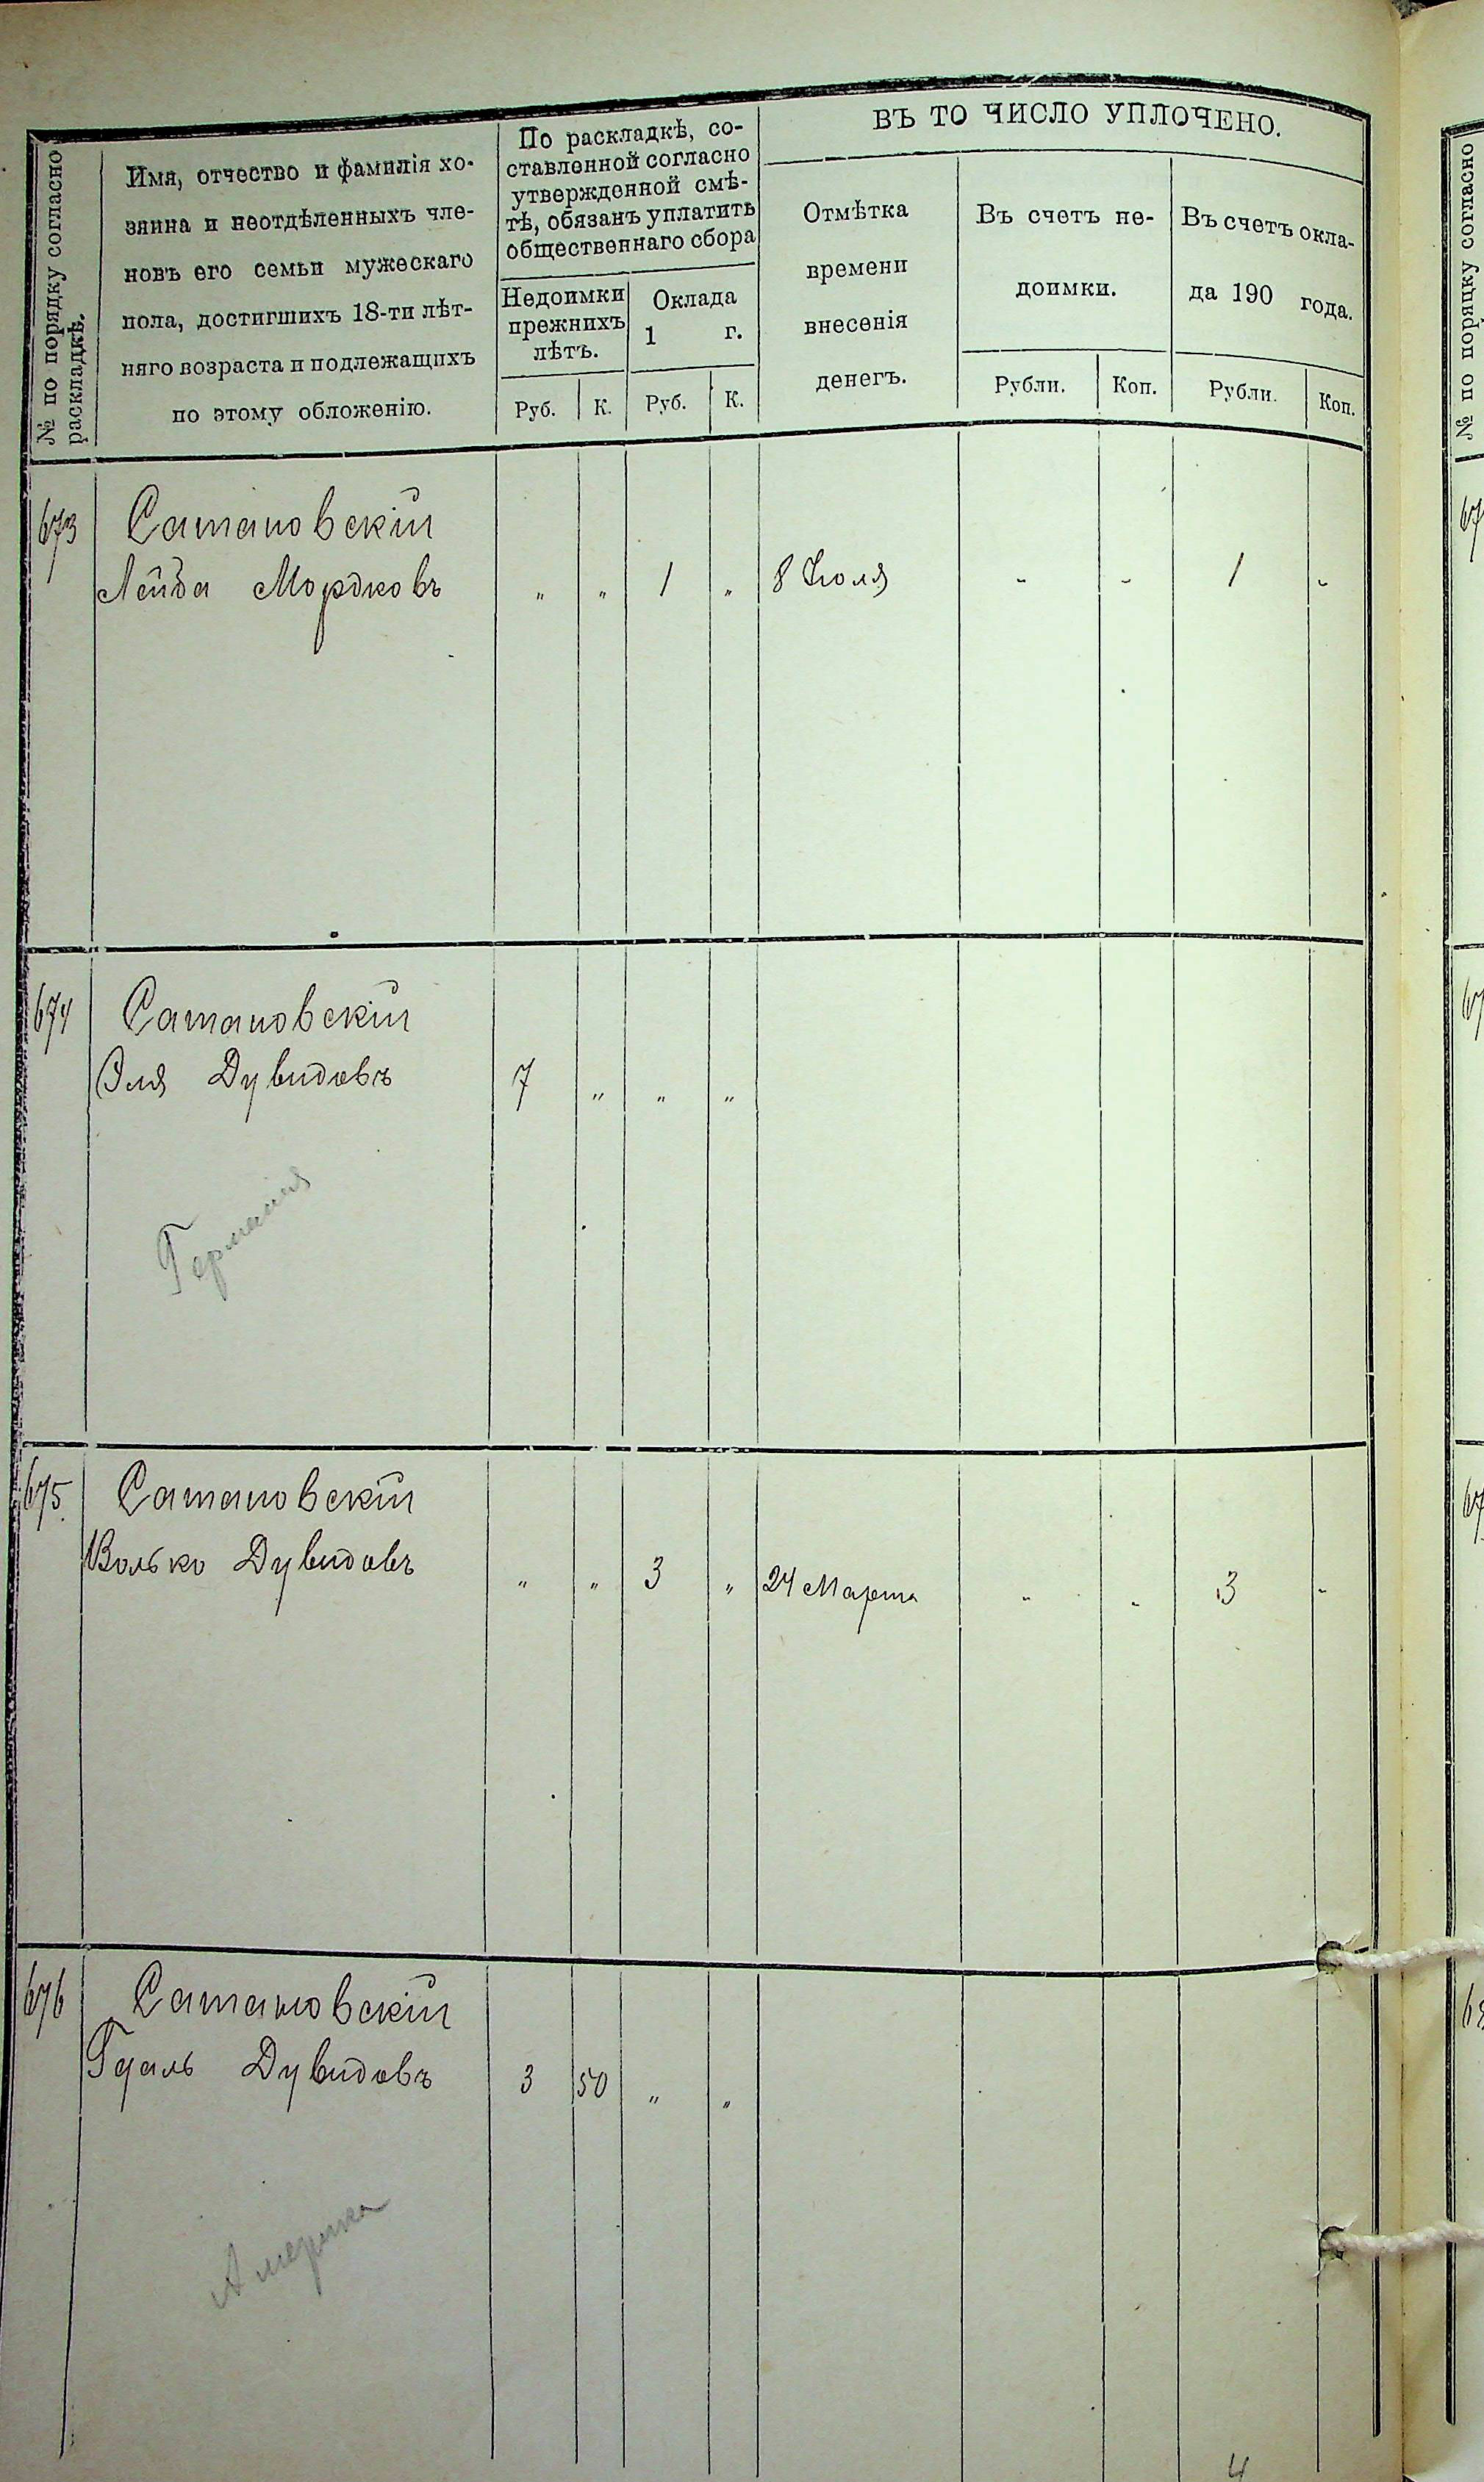 № по порядку согласно
раскладкѣ.
Имя, отчество и фамилія хо-
зяина и неотдѣленныхъ чле-
новъ его семьи мужескаго
пола, достигшихъ 18-ти лѣт-
няго возраста и подлежащихъ
по этому обложенію.
По раскладкѣ, со-
ставленной согласно
утвержденной смѣ-
тѣ, обязанъ уплатить
общественнаго сбора
Недоимки
прежнихъ
лѣтъ.
Оклада
1 г.
Руб. К. Руб. К.
ВЪ ТО ЧИСЛО УПЛОЧЕНО.
Отмѣтка
времени
внесенія
денегъ.
Въ счетъ не-
доимки.
Рубли. Коп.
Въ счетъ окла-
да 190 года.
Рубли. Коп.
673 Сатановскій
Лейба Мордковъ „ „ 1 „ 8 Іюля - - 1 -
674 Сатановскій
Эля Дувидовъ 7 „ „ „
Германія
675 Сатановскій
Волько Дувидовъ „ „ 3 „ 24 Марта - - 3 -
676 Сатановскій
Гдаль Дувидовъ 3 50 „ „
Америка
4
№ по порядку согласно